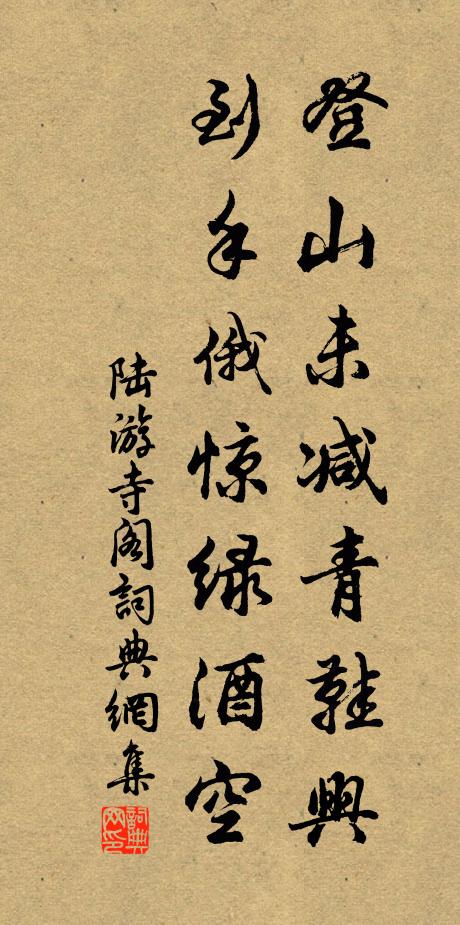 登山未减青鞋興
到手俄惊绿酒空
陆游寺阁詞典網集
詞典网印